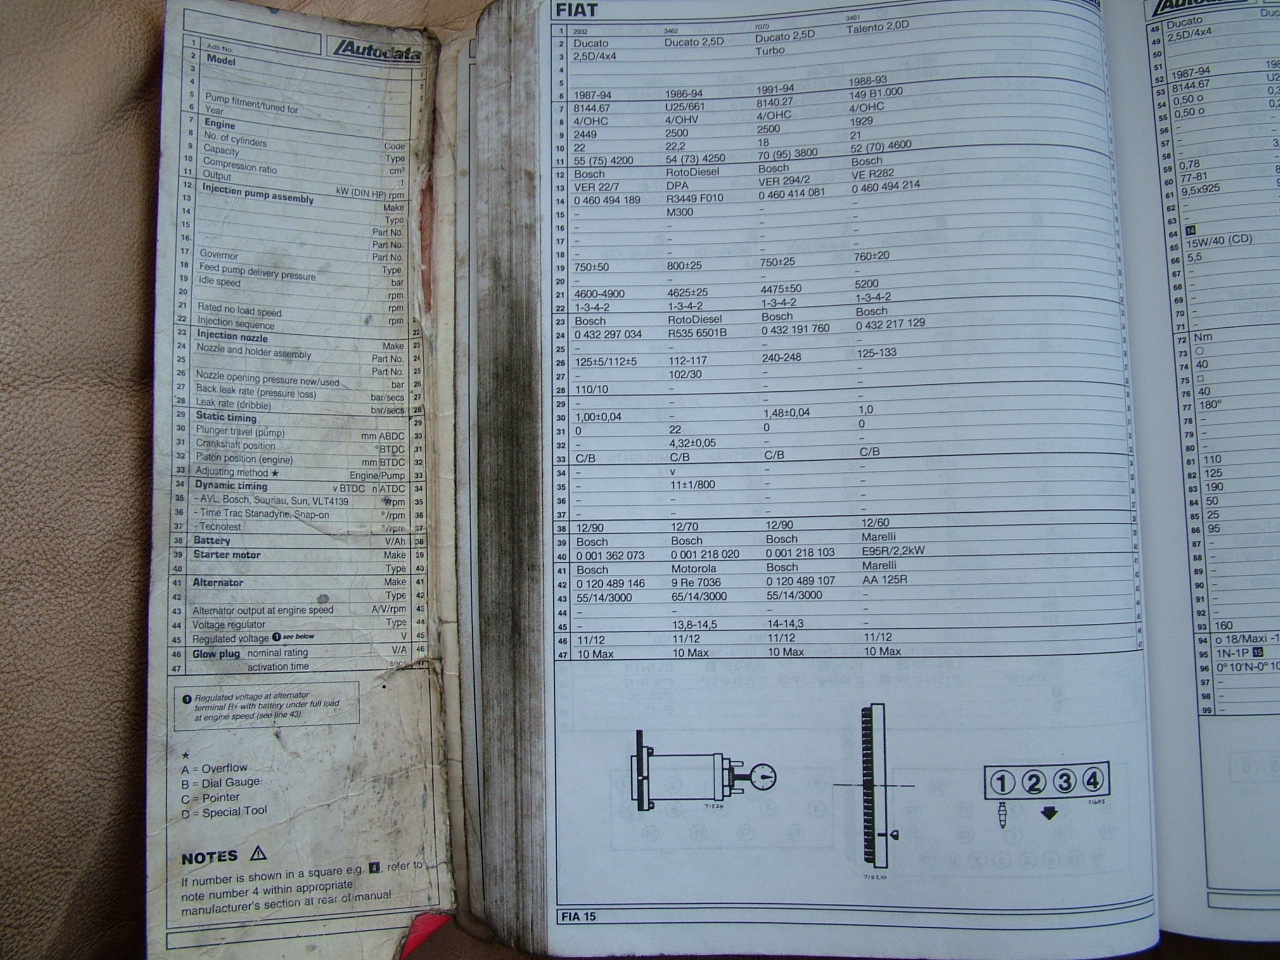 Autodata
1 Adb No.
2 Model
3
4
5 Pump fitment/tuned for
6 Year
7 Engine Code
8 No. of cylinders Type
9 Capacity cm³
10 Compression ratio :1
11 Output kW (DIN HP) rpm
12 Injection pump assembly Make
13 Type
14 Part No.
15 Part No.
16 Part No.
17 Governor Type
18 Feed pump delivery pressure bar
19 Idle speed rpm
20 rpm
21 Rated no load speed rpm
22 Injection sequence
23 Injection nozzle Make
24 Nozzle and holder assembly Part No.
25 Part No.
26 Nozzle opening pressure new/used bar
27 Back leak rate (pressure loss) bar/secs
28 Leak rate (dribble) bar/secs
29 Static timing
30 Plunger travel (pump) mm ABDC
31 Crankshaft position °BTDC
32 Piston position (engine) mm BTDC
33 Adjusting method ★ Engine/Pump
34 Dynamic timing v BTDC n ATDC
35 - AVL, Bosch, Souriau, Sun, VLT4139 °/rpm
36 - Time Trac Stanadyne, Snap-on °/rpm
37 - Tecnotest °/rpm
38 Battery V/Ah
39 Starter motor Make
40 Type
41 Alternator Make
42 Type
43 Alternator output at engine speed A/V/rpm
44 Voltage regulator Type
45 Regulated voltage ❶ see below V
46 Glow plug nominal rating V/A
47 activation time secs
❶ Regulated voltage at alternator
terminal B+ with battery under full load
at engine speed (see line 43).
★
A = Overflow
B = Dial Gauge
C = Pointer
D = Special Tool
NOTES
If number is shown in a square e.g. 4, refer to
note number 4 within appropriate
manufacturer's section at rear of manual
FIAT
1 2932 3462 7070 3461
2 Ducato Ducato 2,5D Ducato 2,5D Talento 2,0D
3 2,5D/4x4 Turbo
4
5
6 1987-94 1986-94 1991-94 1988-93
7 8144.67 U25/661 8140.27 149 B1.000
8 4/OHC 4/OHV 4/OHC 4/OHC
9 2449 2500 2500 1929
10 22 22,2 18 21
11 55 (75) 4200 54 (73) 4250 70 (95) 3800 52 (70) 4600
12 Bosch RotoDiesel Bosch Bosch
13 VER 22/7 DPA VER 294/2 VE R282
14 0 460 494 189 R3449 F010 0 460 414 081 0 460 494 214
15 – M300 – –
16 – – – –
17 – – – –
18 – – – –
19 750±50 800±25 750±25 760±20
20 – – – –
21 4600-4900 4625±25 4475±50 5200
22 1-3-4-2 1-3-4-2 1-3-4-2 1-3-4-2
23 Bosch RotoDiesel Bosch Bosch
24 0 432 297 034 R535 6501B 0 432 191 760 0 432 217 129
25 – – – –
26 125±5/112±5 112-117 240-248 125-133
27 – 102/30 – –
28 110/10 – – –
29
30 1,00±0,04 – 1,48±0,04 1,0
31 0 22 0 0
32 – 4,32±0,05 – –
33 C/B C/B C/B C/B
34 – v – –
35 – 11±1/800 – –
36 – – – –
37 – – – –
38 12/90 12/70 12/90 12/60
39 Bosch Bosch Bosch Marelli
40 0 001 362 073 0 001 218 020 0 001 218 103 E95R/2,2kW
41 Bosch Motorola Bosch Marelli
42 0 120 489 146 9 Re 7036 0 120 489 107 AA 125R
43 55/14/3000 65/14/3000 55/14/3000
44 – – – –
45 – 13,8-14,5 14-14,3 –
46 11/12 11/12 11/12 11/12
47 10 Max 10 Max 10 Max 10 Max
71524
71520
1 2 3 4
71645
FIA 15
Autodata
48 Ducato
49 2,5D/4x4
50
51
52 1987-94
53 8144.67
54 0,50 o
55 0,50 o
56 –
57 –
58 –
59 0,78
60 77-81
61 9,5x925
62 –
63 –
64 14
65 15W/40 (CD)
66 5,5
67 –
68 –
69 –
70 –
71 –
72 Nm
73 ○
74 40
75 □
76 40
77 180°
78 –
79 –
80 –
81 110
82 125
83 190
84 50
85 25
86 95
87 –
88 –
89 –
90 –
91 –
92 –
93 160
94 o 18/Maxi
95 1N-1P 15
96 0°10'N-0°
97 –
98 –
99 –